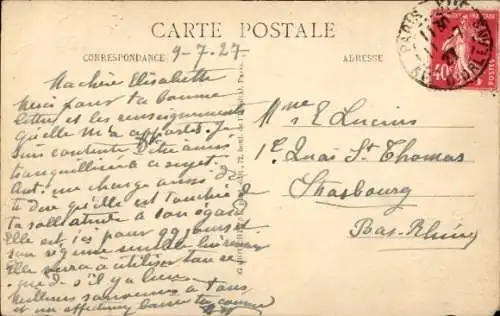 CARTE POSTALE
CORRESPONDANCE
ADRESSE
9-7.27
Ma chère Elisabette
Merci pour ta bonne
lettre et les renseignements
qu'elle m'a apportés. Je
suis contente d'être ainsi
tranquillisée à ce sujet.
me charge aussi de
te dire qu'elle est touchée
ta sollicitude à son égard
Elle est ici pour qq jours et
son régime semble
Elle verra à utiliser ton re-
mède s'il y a lieu.
Meilleurs souvenirs à tous
et un affectueux baiser
Mme E Lucius
1e Quai St Thomas
Strasbourg
Bas-Rhin
PARIS
40
POSTES